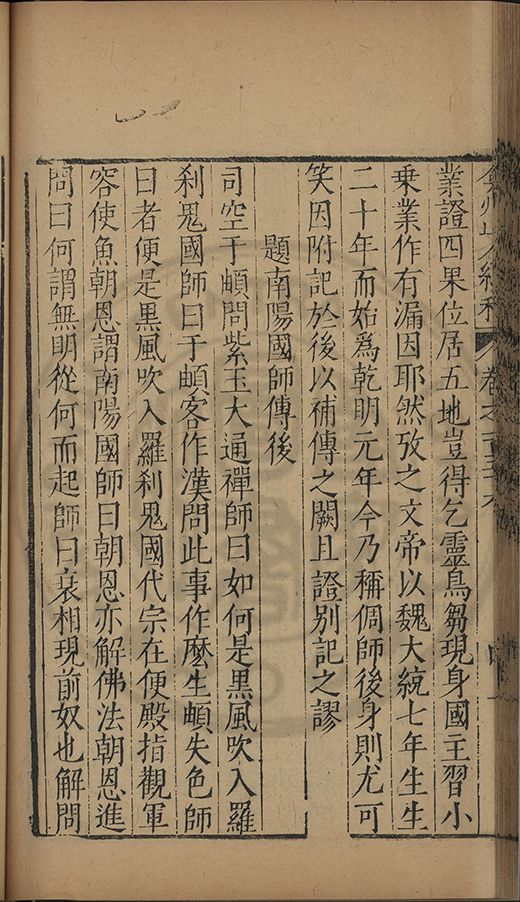 弇州山人續稿 卷之一百五十六
業證四果位居五地豈得乞靈鳥芻現身國主習小
乗業作有漏因耶然攷之文帝以魏大統七年生生
二十年而始爲乾明元年今乃稱倜師後身則尤可
笑因附記於後以補傳之闕且證别記之謬
題南陽國師傳後
司空于頔問紫玉大通禪師曰如何是黒風吹入羅
刹鬼國師曰于頔客作漢問此事作麽生頔失色師
曰者便是黒風吹入羅刹鬼國代宗在便殿指觀軍
容使魚朝恩謂南陽國師曰朝恩亦解佛法朝恩進
問曰何謂無明從何而起師曰衰相現前奴也解問